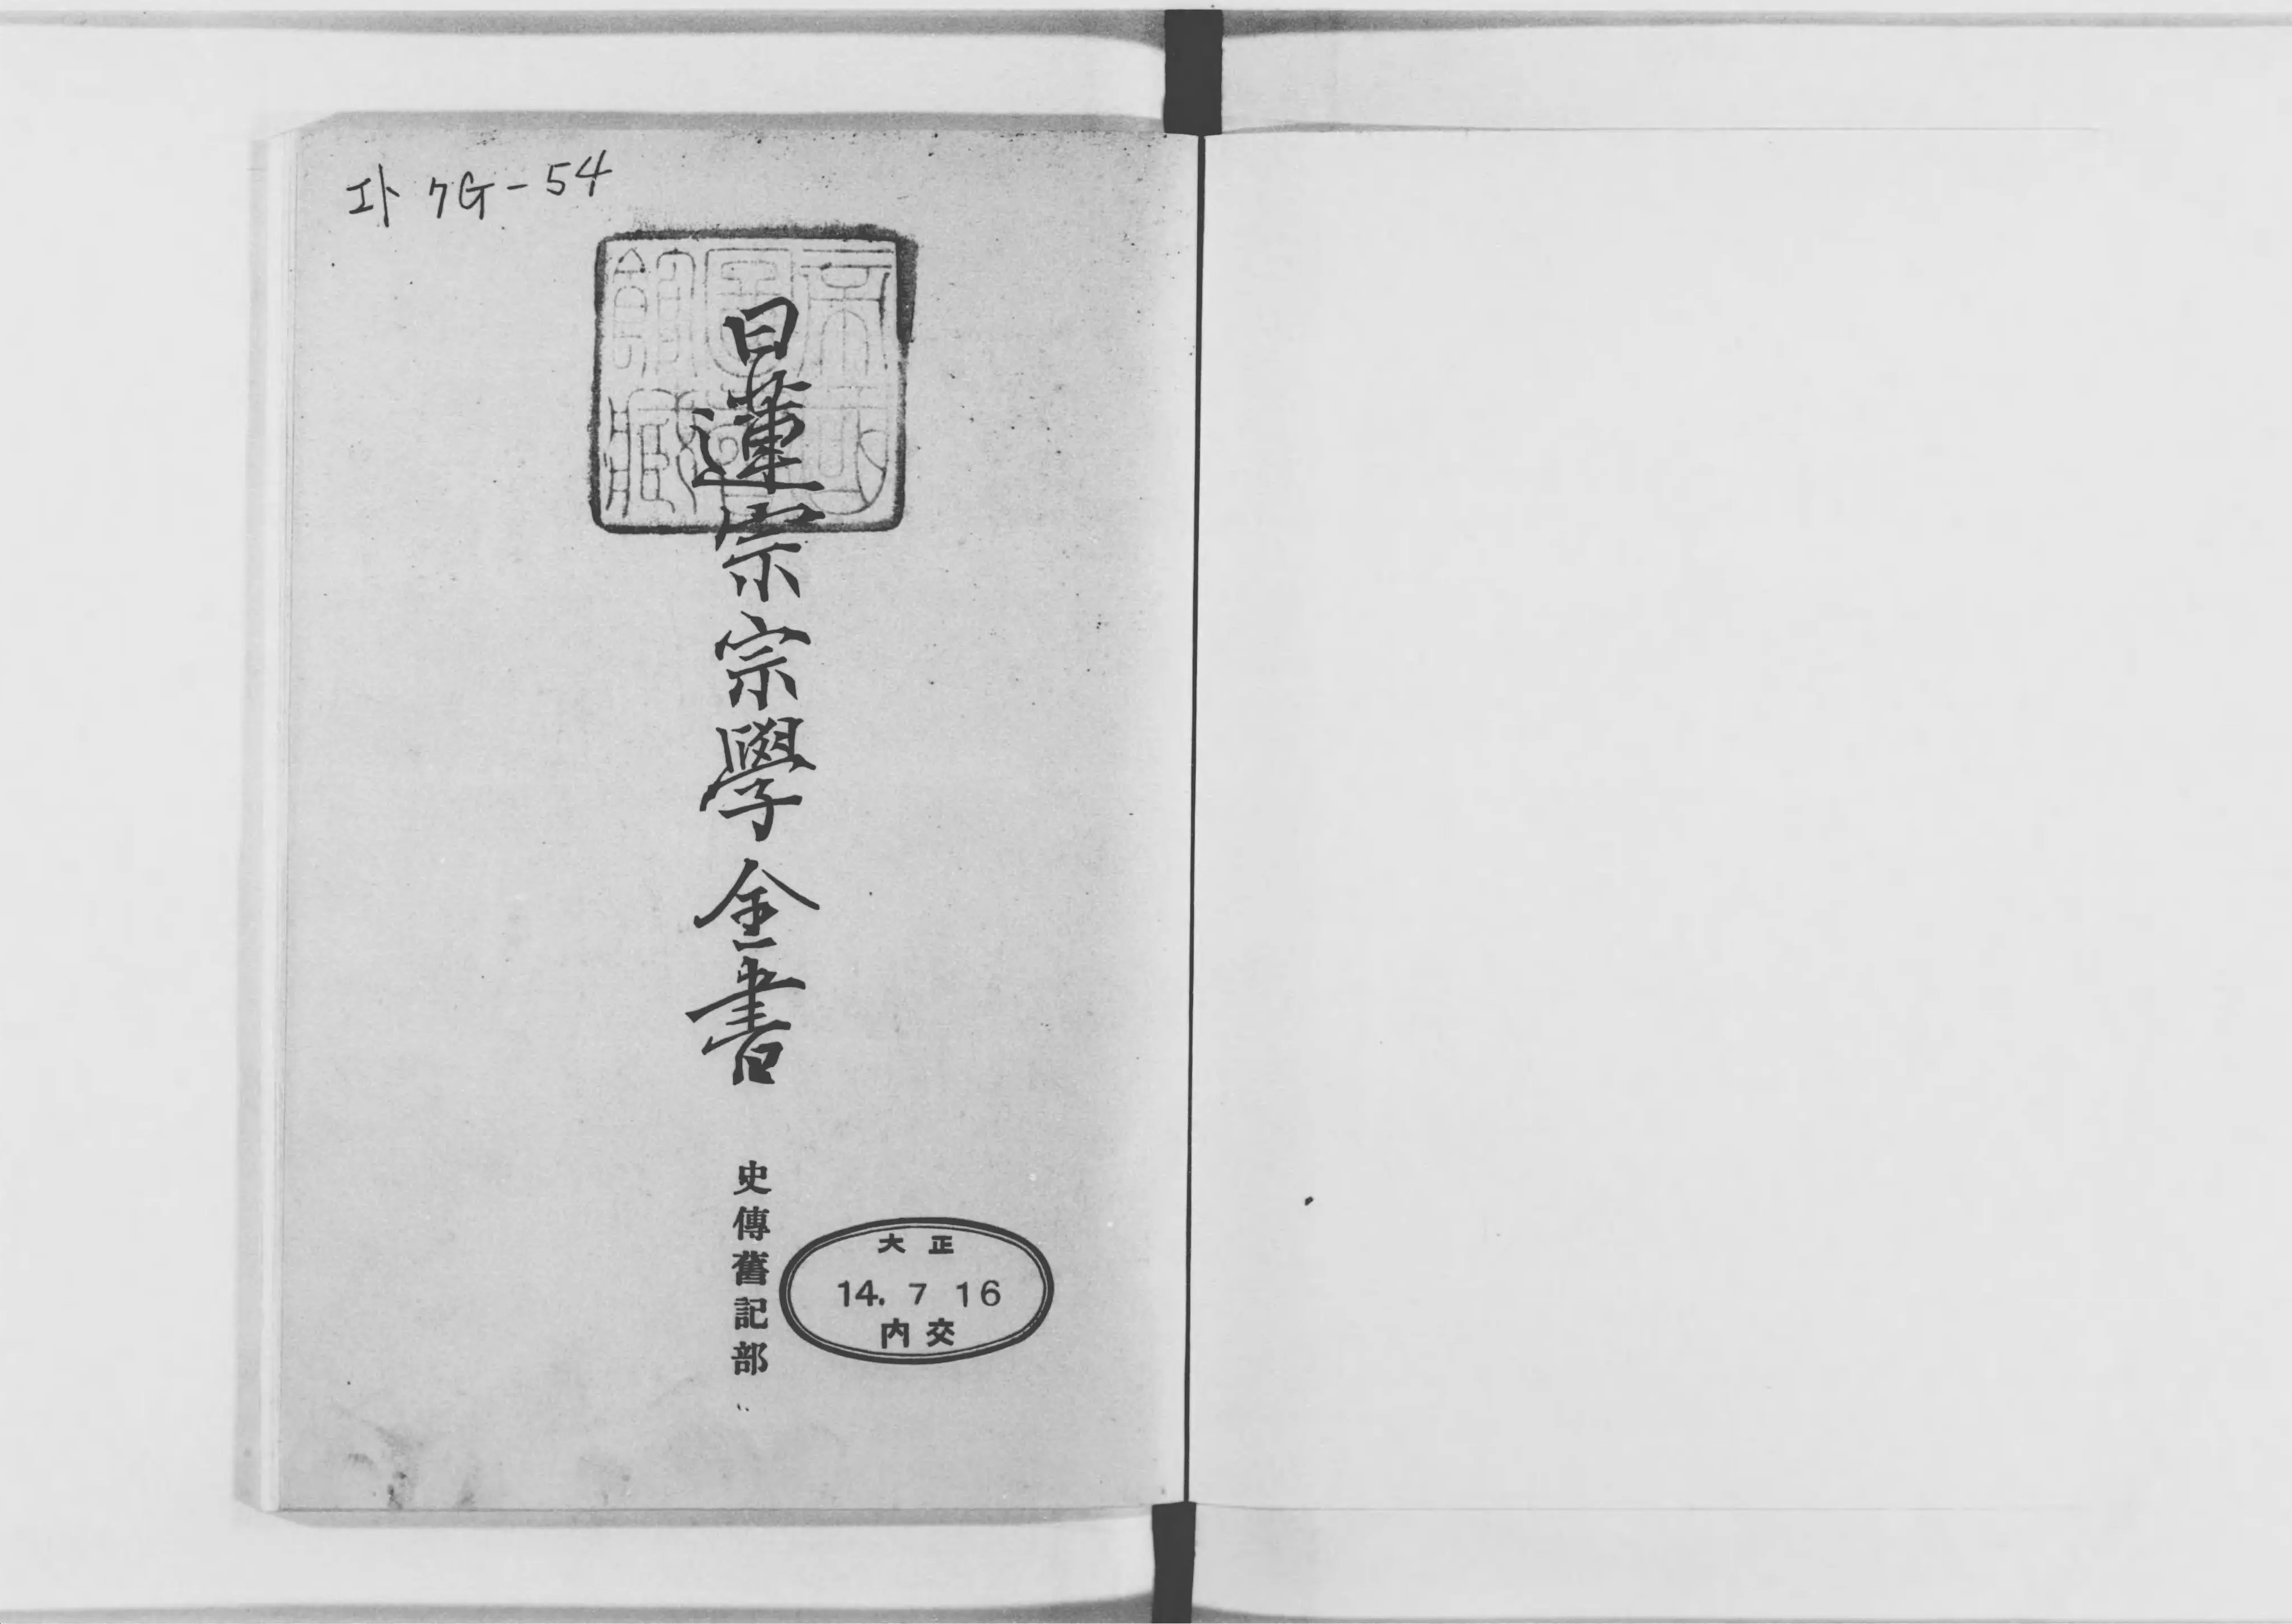 7G-54
帝國圖書館藏
日蓮宗宗學全書
史傳舊記部
大正
14. 7 16
内交